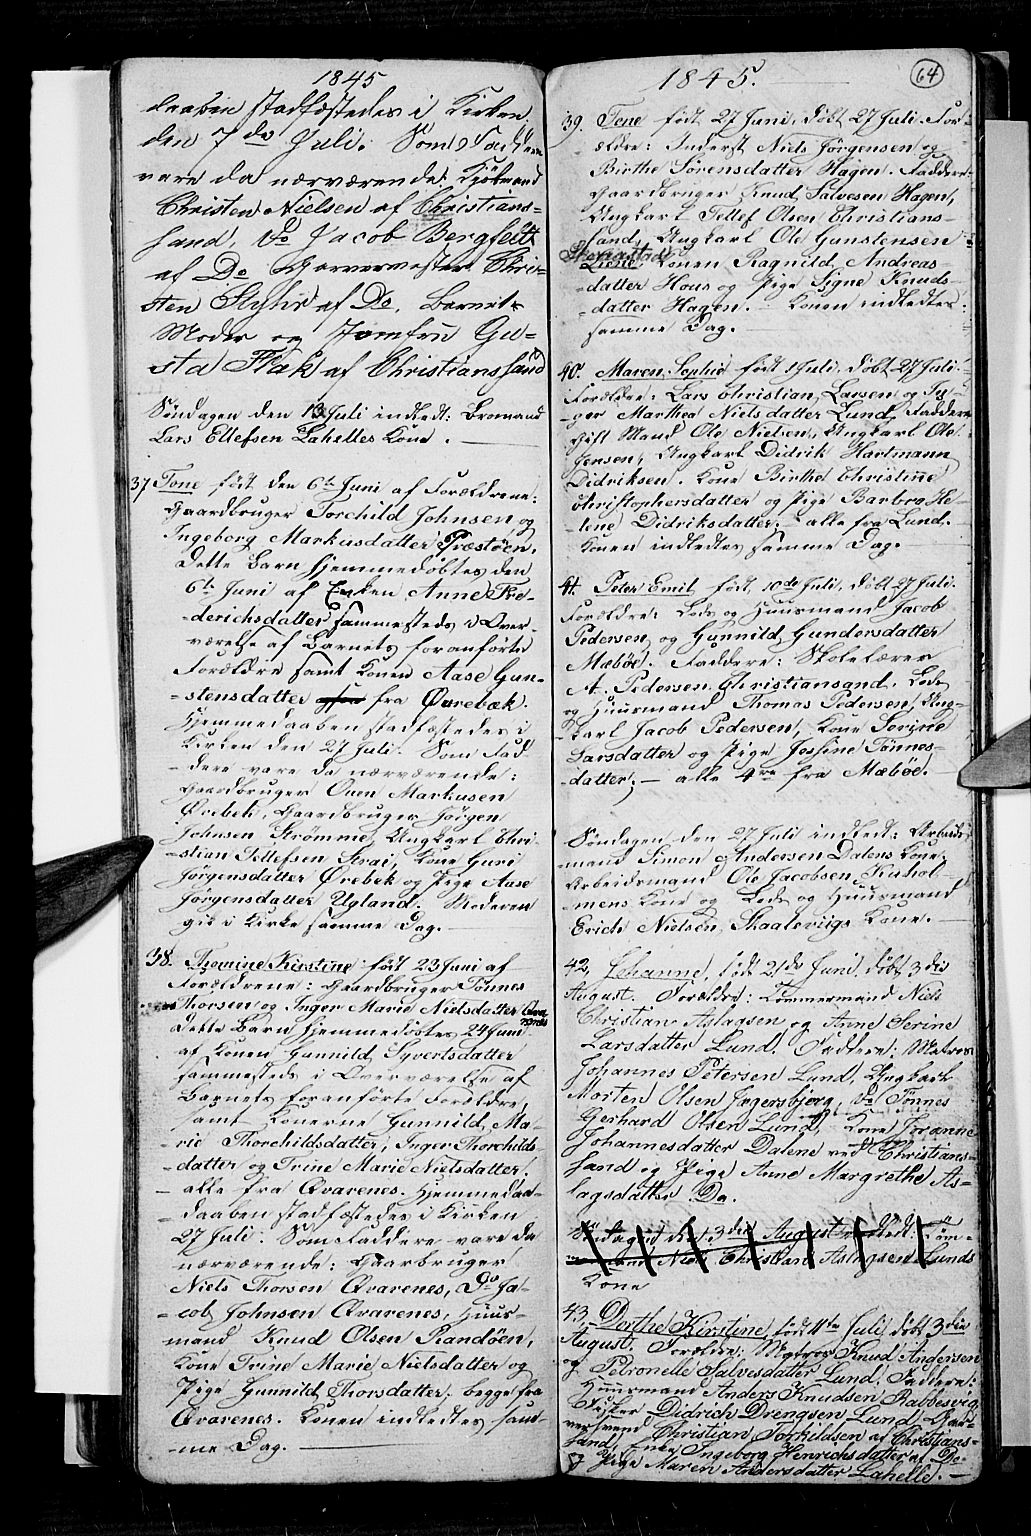 1845
daaben stadfæstedes i Kirken
den 7de Juli. Som Faddere
vare da nærværende: Kjøbmand
Christen Nielsen af Christians-
sand, Do Jacob Bergfeldt
af Do Garvermester Chri-
sten Slyhr af Do, Barnets
Moder og Jomfru Gu-
sta Flak af Christianssand
Søndagen den 13 Juli indledt: Bormand
Lars Ellefsen Lahelles Kone.
37 Tone født den 6te Juni af Forældrene:
Gaardbruger Torchild Johnsen og
Ingeborg Markusdatter Præstøen.
Dette Barn hjemmedøbtes den
6te Juni af Enken Anne Fre-
-derichsdatter sammesteds i Over-
værelse af Barnets foranførte
Forældre samt Konen Aase Gun-
-stensdatter fra Øvrebæk.
Hjemmedaaben stadfæstedes i
Kirken den 27 Juli. Som Fad-
-dere vare da nærværende:
Gaardbruger Onen Markusen
Ørebek, Gaardbruger Jørgen
Johnsen Strømme, Ungkarl Chri-
-stian Tellefsen Strai, Kone Guri
Jørgensdatter Ørebek og Pige Aase
Jørgensdatter Ugland. Moderen
gik i Kirke samme Dag.
38. Thomine Kirstine født 23 Juni af
Forældrene: Gaardbruger Tønnes
Thorsen og Inger Marie Nielsdatter Qva
renes
Dette Barn hjemmedøbtes 24 Juni
af Konen Gunnild Syvertsdatter
sammesteds i Overværelse af
Barnets foranførte Forældre,
samt Konerne Gunnild Ma-
rie Thorchildsdatter, Inger Thorchilds
-datter og Trine Marie Nielsdatter.
- alle fra Qvarenes. Hjemmeda-
-daaben stadfæstedes i Kirken
27 Juli. Som Faddere vare da
nærværende: Gaarbruger
Niels Thorsen Qvarenes, Do Ja-
cob Johnsen Qvarenes, Huus-
mand Knud Olsen Randøen,
Kone Trine Marie Nielsdatter og
Pige Gunnild Thorsdatter. begge fra
Qvarenes. Konen indledtes sam-
-me Dag.
1845.
64
39. Tene født 27 Juni, døbt 27 Juli. For-
ældre: Inderst Niels Jørgensen og
Birthe Sørensdatter Hagen. Faddere:
Gaardbruger Knud Salvesen Hagen,
Ungkarl Tellef Olsen Christians-
sand, Ungkarl Ole Gunstensen
Konen Ragnild Andreas-
-datter Hous og Pige Signe Knuds-
-datter Hagen. Konen indledtes
samme Dag.
40. Maren Sophie født 1 Juli. døbt 27 Juli.
Forældre: Lars Christian Larsen og In-
ger Marthea Nielsdatter Lund. Faddere
Gift Mand Ole Nielsen, Ungkarl Ole
Jensen, Ungkarl Didrik Hartmann
Didriksen. Kone Birthe Christine
Christophersdatter og Pige Barbro He-
lene Didriksdatter. - alle fra Lund.
Konen indledtes samme Dag.
41. Peter Emil født 10de Juli, døbt 27 Juli.
Forældre: Lods og Huusmand Jacob
Pedersen og Gunnild Gundersdatter
Mæbøe. Faddere: Skolelærer
A. Pedersen Christiansand. Lods
og Huusmand Thomas Pedersen, Ung-
karl Jacob Pedersen, Kone Sorine
Larsdatter og Pige Josine Tønnes-
-datter; - alle 4re fra Mæbøe.
Søndagen den 27 Juli indledt: Arbeids-
-mand Simon Andersen Dalens Kone,
Arbeidsmand Ole Jacobsen Kushol-
-mens Kone og Lods og Huusmand
Erich Nielsen Skaaleviigs Kone.
42. Johanne, født 21de Juni, døbt 3die
August. Forældre: Tømmermand Niels
Christian Aslagsen og Anne Serine
Larsdatter Lund. Faddere: Matros
Johannes Petersen Lund, Ungkarl
Morten Olsen Jægersbjerg, Do Tønnes
Gerhard Olsen Lund, Kone Joranne
Johannesdatter Dalene ved Christians-
sand og Pige Anne Margrethe As-
lagsdatter Do.
Søndagen den 3die August indledt: Tøm-
Niels Christian Aslagsen Lunds
Kone
43. Dorthe Kirstine, født 11te Juli døbt 3die
August. Forældre: Matros Knud Andersen
og Petronelle Salvesdatter Lund. Faddere:
Huusmand Anders Knudsen Rabbesvig,
Didrich Drengsen Lund, Gar-
versvend Christian Torkildsen af Christians-
sand, Enke Ingeborg Henrichsdatter af Do-
og Pige Maren Andersdatter Lahelle. -